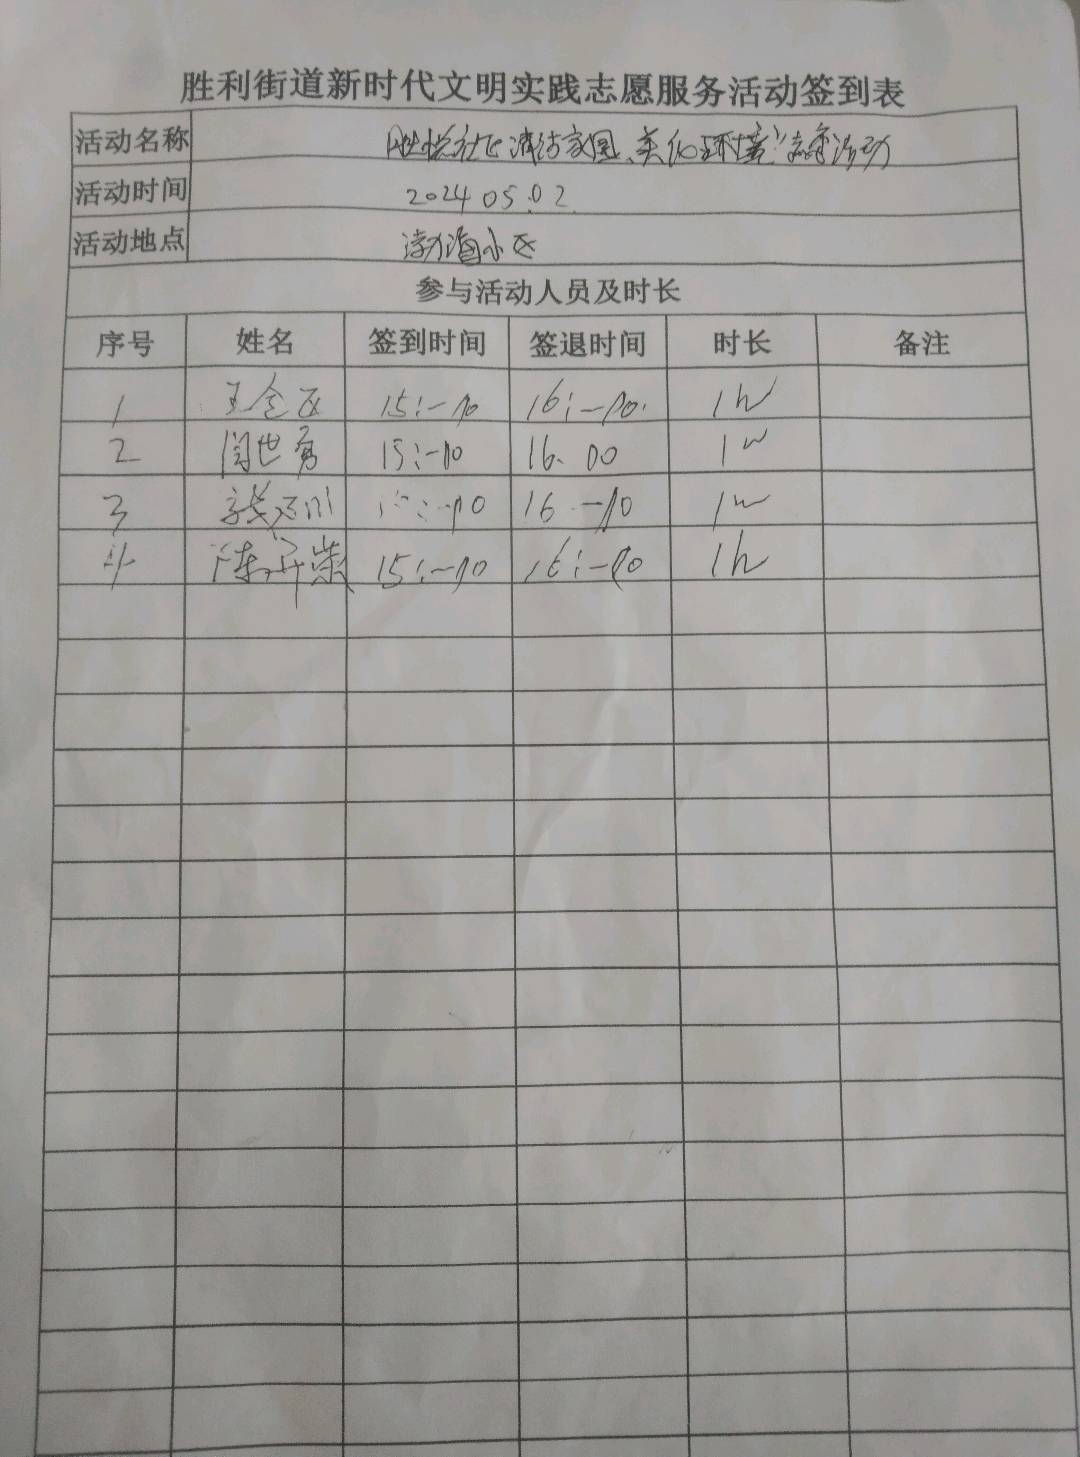 胜利街道新时代文明实践志愿服务活动签到表
活动名称 胜悦社区清洁家园、美化环境"志愿活动
活动时间 2024 05.02.
活动地点 渤海小区
参与活动人员及时长
序号 姓名 签到时间 签退时间 时长 备注
1 15:-00 16:-00. 1h
2 闫世勇 15:-00 16.00 1h
3 -00 16 -00 1h
4 陈 荣 15:-00 16:-00 1h